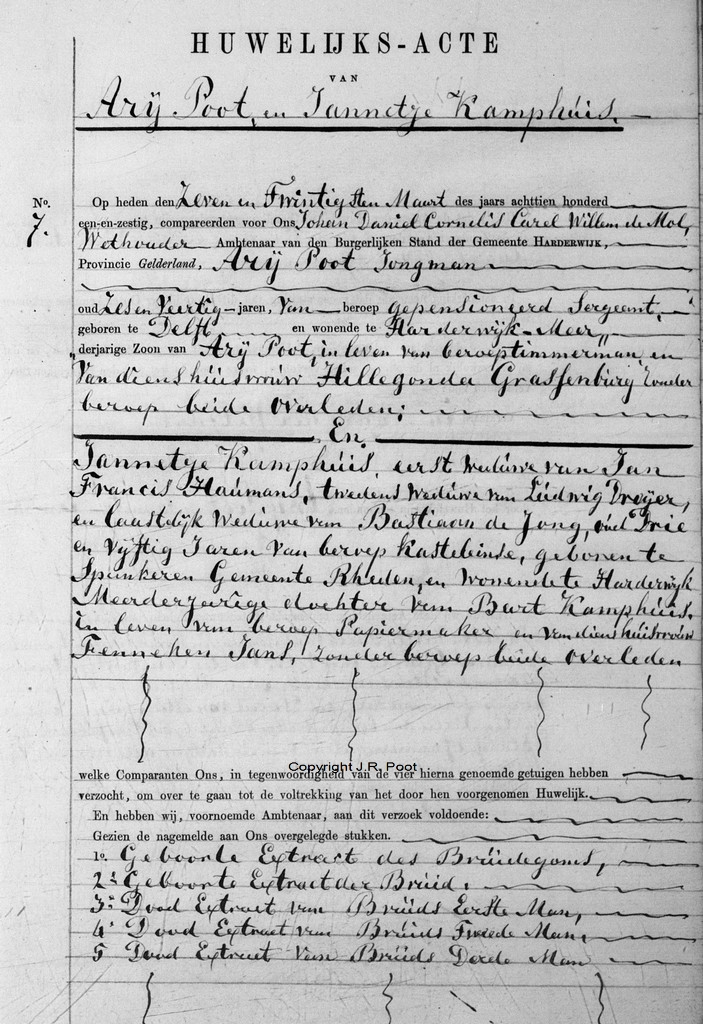 HUWELIJKS-ACTE
VAN
Arÿ Poot, en Jannetje Kamphúis.
No. 7.
Op heden den Zeven en Twintigsten Maart des jaars achttien honderd
een-en-zestig, compareerden voor Ons Johan Daniel Cornelis Carel Willem de Mol,
Wethouder Ambtenaar van den Burgerlijken Stand der Gemeente HARDERWIJK,
Provincie Gelderland, Arÿ Poot Jongman
oud Zes en Veertig jaren, Van beroep gepensioneerd Sergeant,
geboren te Delft en wonende te Harderwÿk Meer„
„derjarige Zoon van Arÿ Poot, in leven van beroep timmerman, en
Van diens húisvrouw Hillegonda Grassenburg zonder
beroep beide overleden;
En
Jannetje Kamphúis, eerst weduwe van Jan
Francis Haúmans, tweedens weduwe van Lúdwig Dreÿer,
en laastelÿk Weduwe van Bastiaan de Jong, oúd Drie
en Vÿftig Jaren Van beroep Kasteleinse, geboren te
Spankeren Gemeente Rheden, en wonende te Harderwÿk
Meerderjarige dochter van Bart Kamphúis,
in leven van beroep Papiermaker en van diens húisvrouw
Fenneken Jans, zonder beroep beide overleden
Copyright J.R. Poot
welke Comparanten Ons, in tegenwoordigheid van de vier hierna genoemde getuigen hebben
verzocht, om over te gaan tot de voltrekking van het door hen voorgenomen Huwelijk.
En hebben wij, voornoemde Ambtenaar, aan dit verzoek voldoende:
Gezien de nagemelde aan Ons overgelegde stukken.
1o. Geboorte Extract des Brúidegoms,
2o. Geboorte Extract der Brúid.
3o. Dood Extract van Brúids Eerste Man,
4o. Dood Extract van Brúids Tweede Man,
5 Dood Extract Van Brúids Derde Man